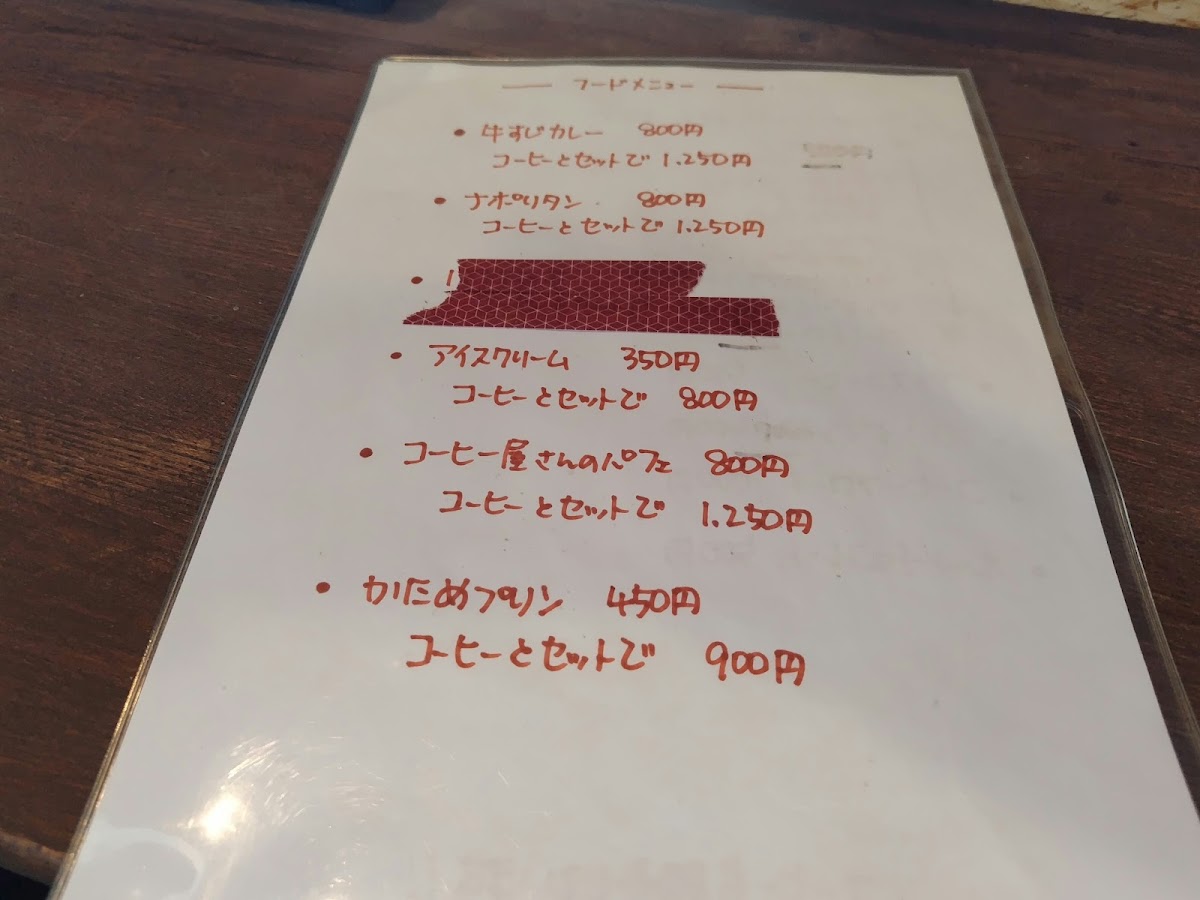 フードメニュー
• 牛すじカレー 800円
コーヒーとセットで 1.250円
• ナポリタン 800円
コーヒーとセットで 1.250円
•
• アイスクリーム 350円
コーヒーとセットで 800円
• コーヒー屋さんのパフェ 800円
コーヒーとセットで 1.250円
• かためプリン 450円
コーヒーとセットで 900円